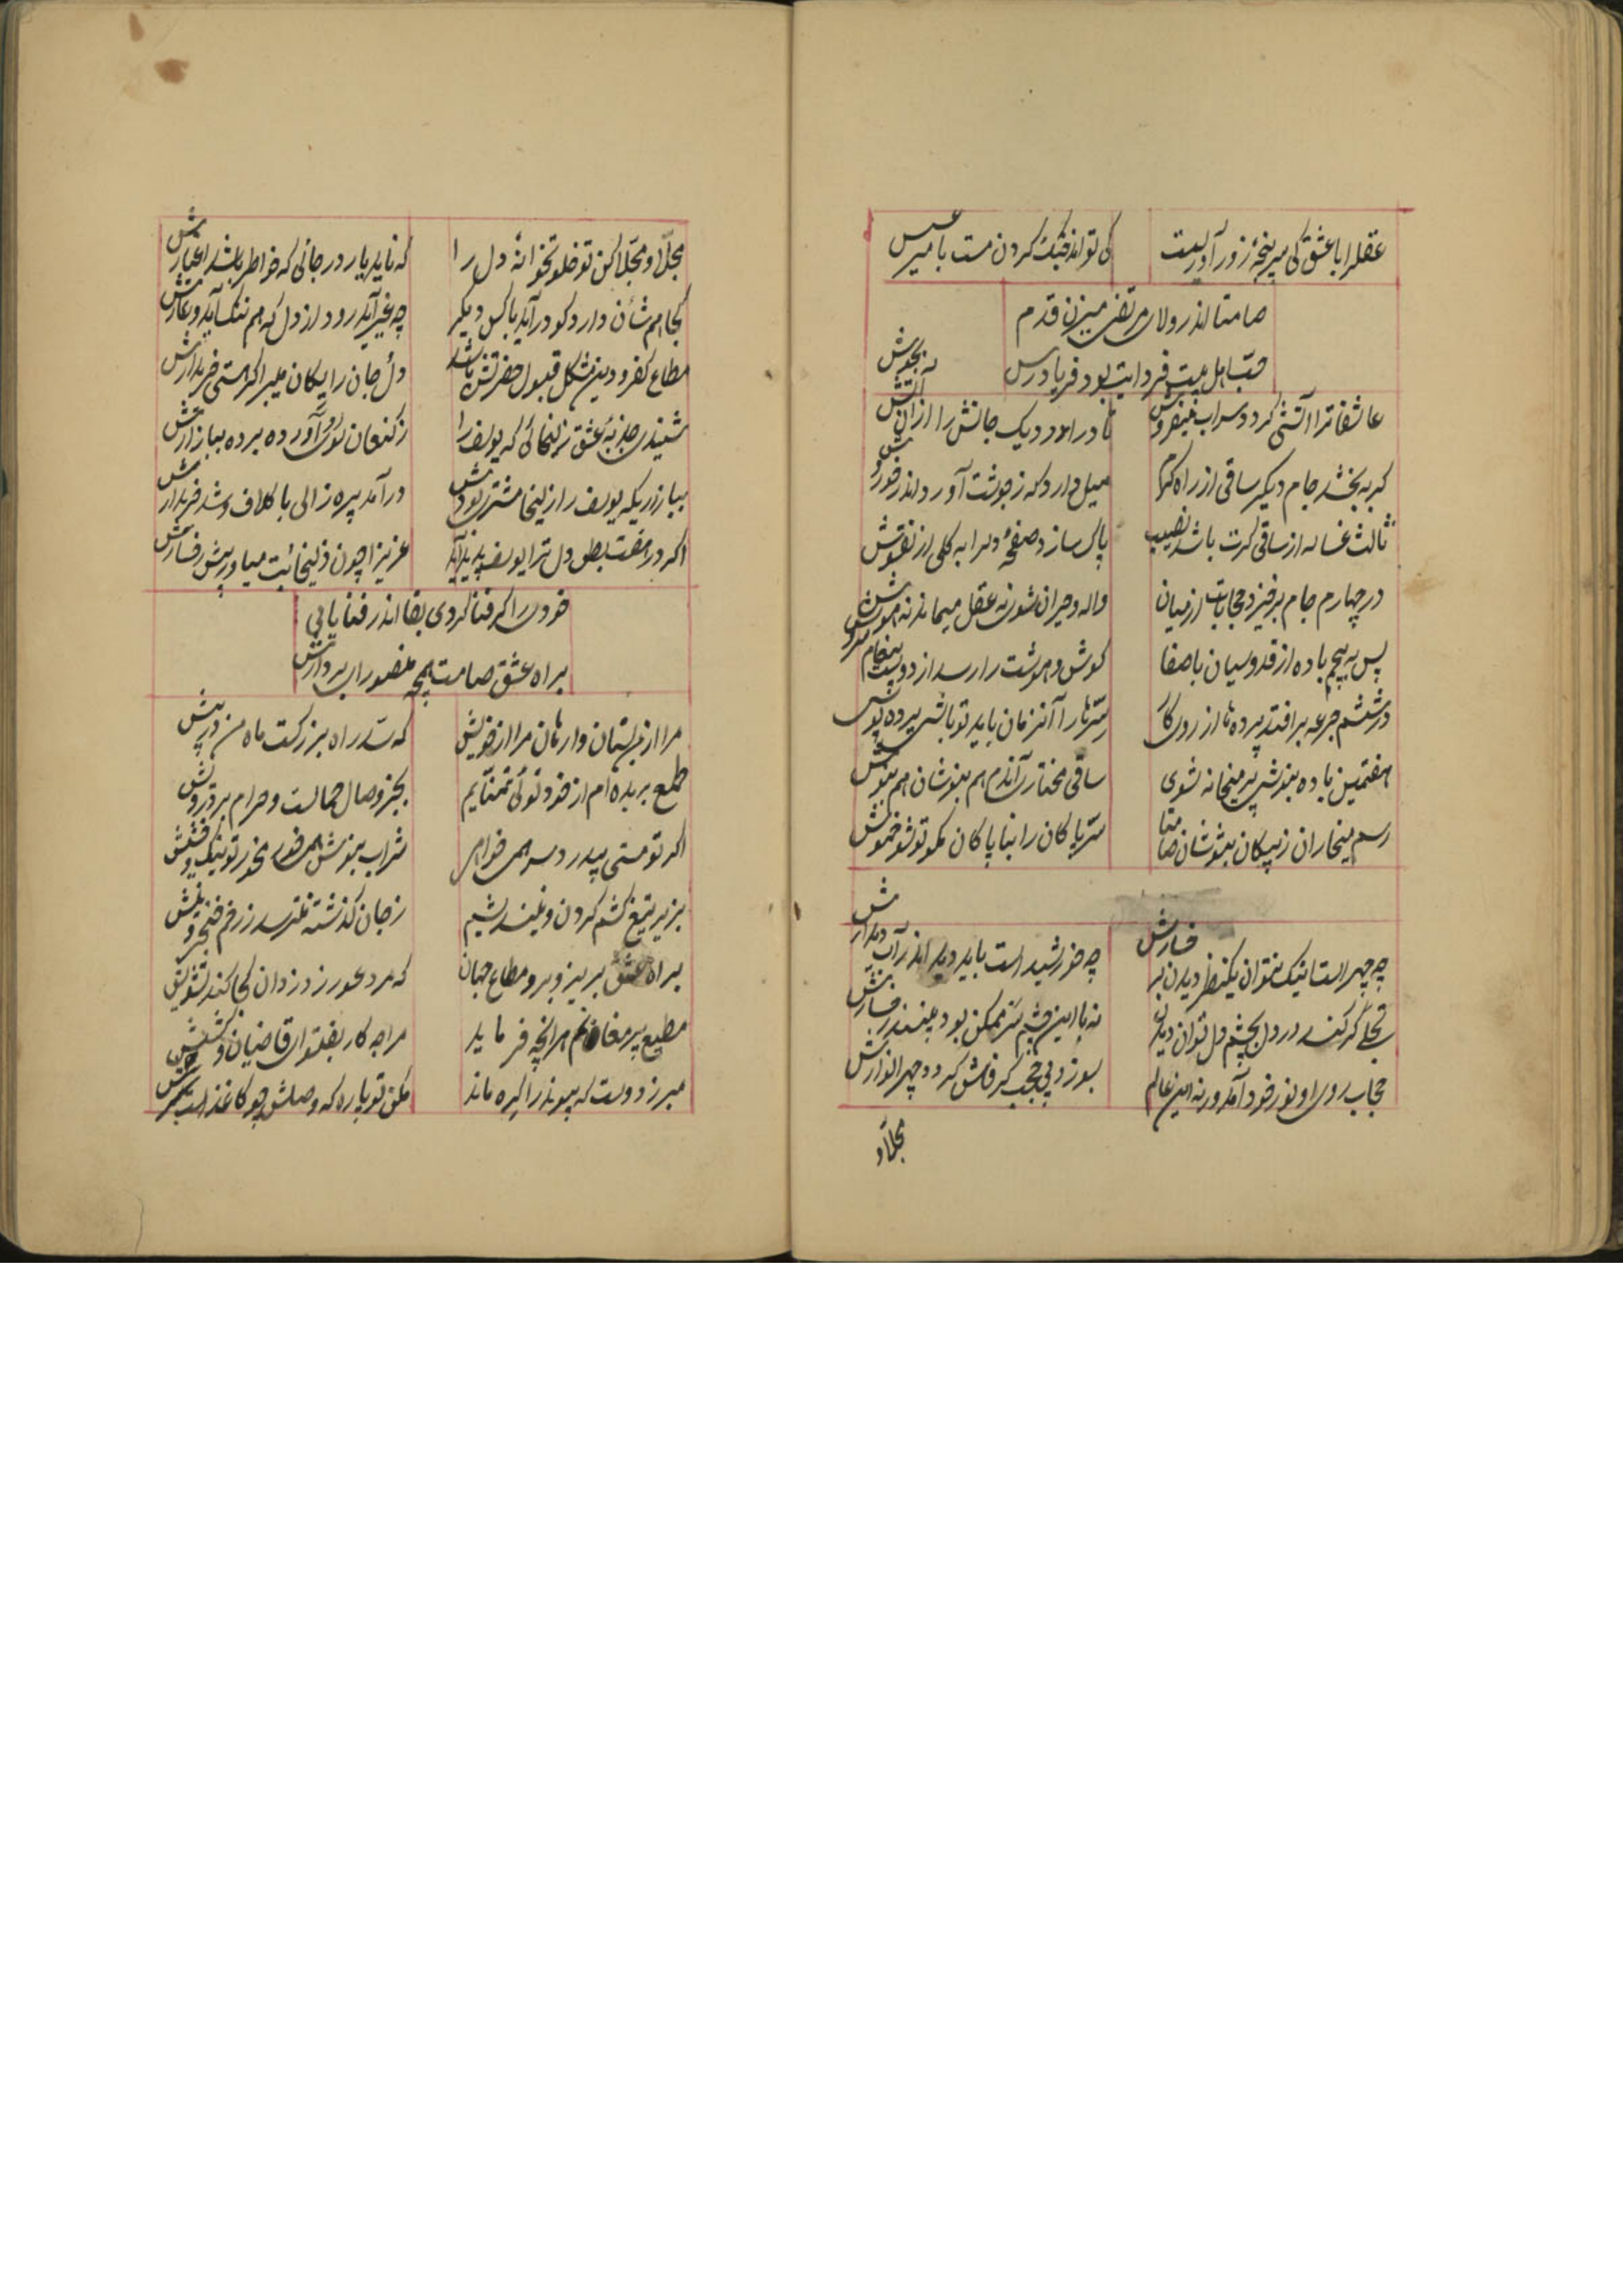 عقلرا با عشق کی سرپنجهٔ زور آوریست
کی تواند جنگ کردن مست با میر عسس
صامتا اندر ولای مرتضی میزن قدم
حبّ اهل بیت فردایت بود فریادرس
عاشقانرا آتشی گردد سراب میفروش
تا درآورد دیک جانش را از آن آتش بجوش
گر ببخشد جام دیگر ساقی از راه کرم
میل دارد که ز جوشت آورد اندر خروش
ثالث غساله از ساقی گرت باشد نصیب
پاک سازد صفحهٔ دلرا به کلی از نقوش
در چهارم جام برخیزد حجابات از میان
واله و حیران شوی نه عقل میماند نه هوش
پس به پنجم باده از قدوسیان باصفا
گوش و هوشت را رسد از دوست پیغام سروش
در ششم جرعه برافتد پرده ها از روی کار
سترها را آنزمان باید تو باشی پرده پوش
هفتمین باده بنوشی پیر میخانه شوی
ساقی مختاری آندم هم بنوشان هم بنوش
رسم میخاران ز نیکان بنوشان صامتا
ستر پاکان را بناپاکان مگو تو شو خموش
چه چهر است اینکه نتوان یکنظر دیدن برخسارش
چه خورشید است باید دید اندر آب دیدارش
تجلی گر کند در دل بچشم دل توان دیدن
نه با این چشم سر ممکن بود بینند رخسارش
حجاب روی او نور خود آمد ورنه این عالم
بسوزد بی حجب گر فاش گردد چهر انوارش
مجلّا و
مجلّا و مجلّا کن تو خلوتخوانهٔ دل را
که ناید یار در جائی که خواطر باشد اغیارش
کجا هم شأن دارد کو درآید با کس دیگر
چه غیر آید رود از دل که هم ننگ آید و عارش
مطاع کفر و دین مشکل قبول حضرتش باشد
دل و جان را یکان میبر اگر هستی خریدارش
شنیدی جذبهٔ عشق زلیخائی که یوسف را
ز کنعان سوی آورده برده ببازارش
ببازاریکه یوسف را زلیخا مشتری بودش
درآمد پیره زالی با کلاف و شد خریدارش
اگر در هفت بطن دل ترا یوسف پدید آید
عزیزا چون زلیخائیت میاور پیش رخسارش
خودی را گر فنا کردی بقا اندر فنا یابی
براه عشق صامت همچه منصوران بردارش
مرا از من بستان وارهان مرا از خویش
که سد راه بزرگت ماه من درپیش
طمع بریده ام از خود توئی تمنایم
بجز وصال حمالت و حرام بر درویش
اگر تو مستی بیدردسر همی خواهی
شراب بنوش همی خور مخور تو بنک و حشیش
بزیر تیغ کشم گردن و نیندیشم
ز جان گذشته نترسد ز زخم خنجر و نیش
براه عشق بریز و برو مطاع جهان
که مرد عور ز دزدان کجا کند تشویش
مطیع پیر مغانم هرانچه فرماید
مرا چه کار بفتوای قاضیان و کشیش
مبر ز دوست که پیوند را گره ماند
مکن تو پاره که وصلش چو کاغذ است سریش